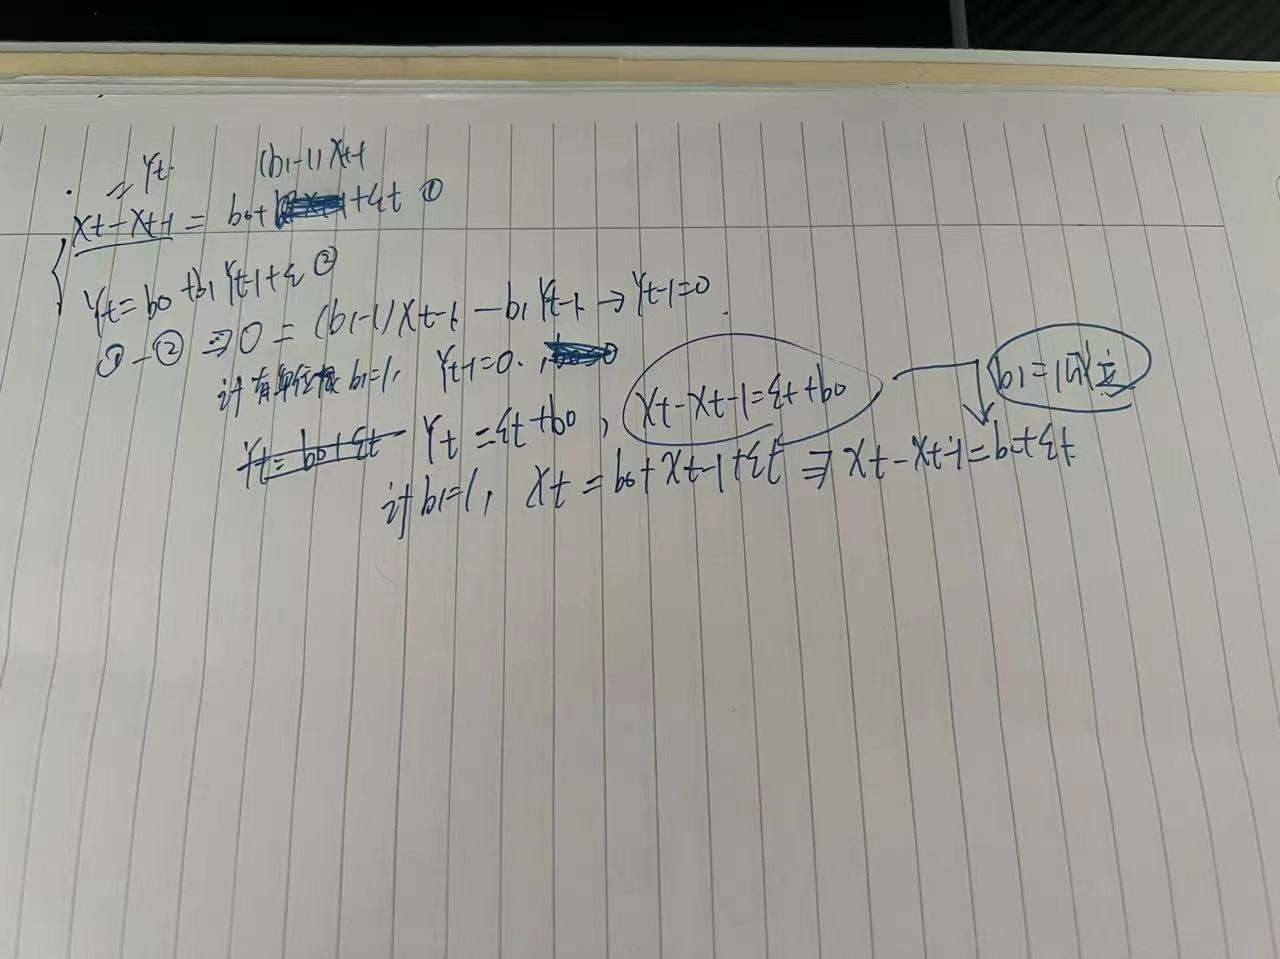 = Yt. (b1-1)Xt-1
Xt-Xt-1 = b0+ +εt ①
Yt=b0+b1Yt-1+ε ②
①-② ⇒ 0 = (b1-1)Xt-1 - b1Yt-1 → Yt-1=0
if 有单位根 b1=1, Yt-1=0.,
Yt=b0+εt Yt =εt+b0, Xt-Xt-1=εt+b0 b1=1
if b1=1, Xt = b0+Xt-1+εt ⇒ Xt-Xt-1=b0+εt